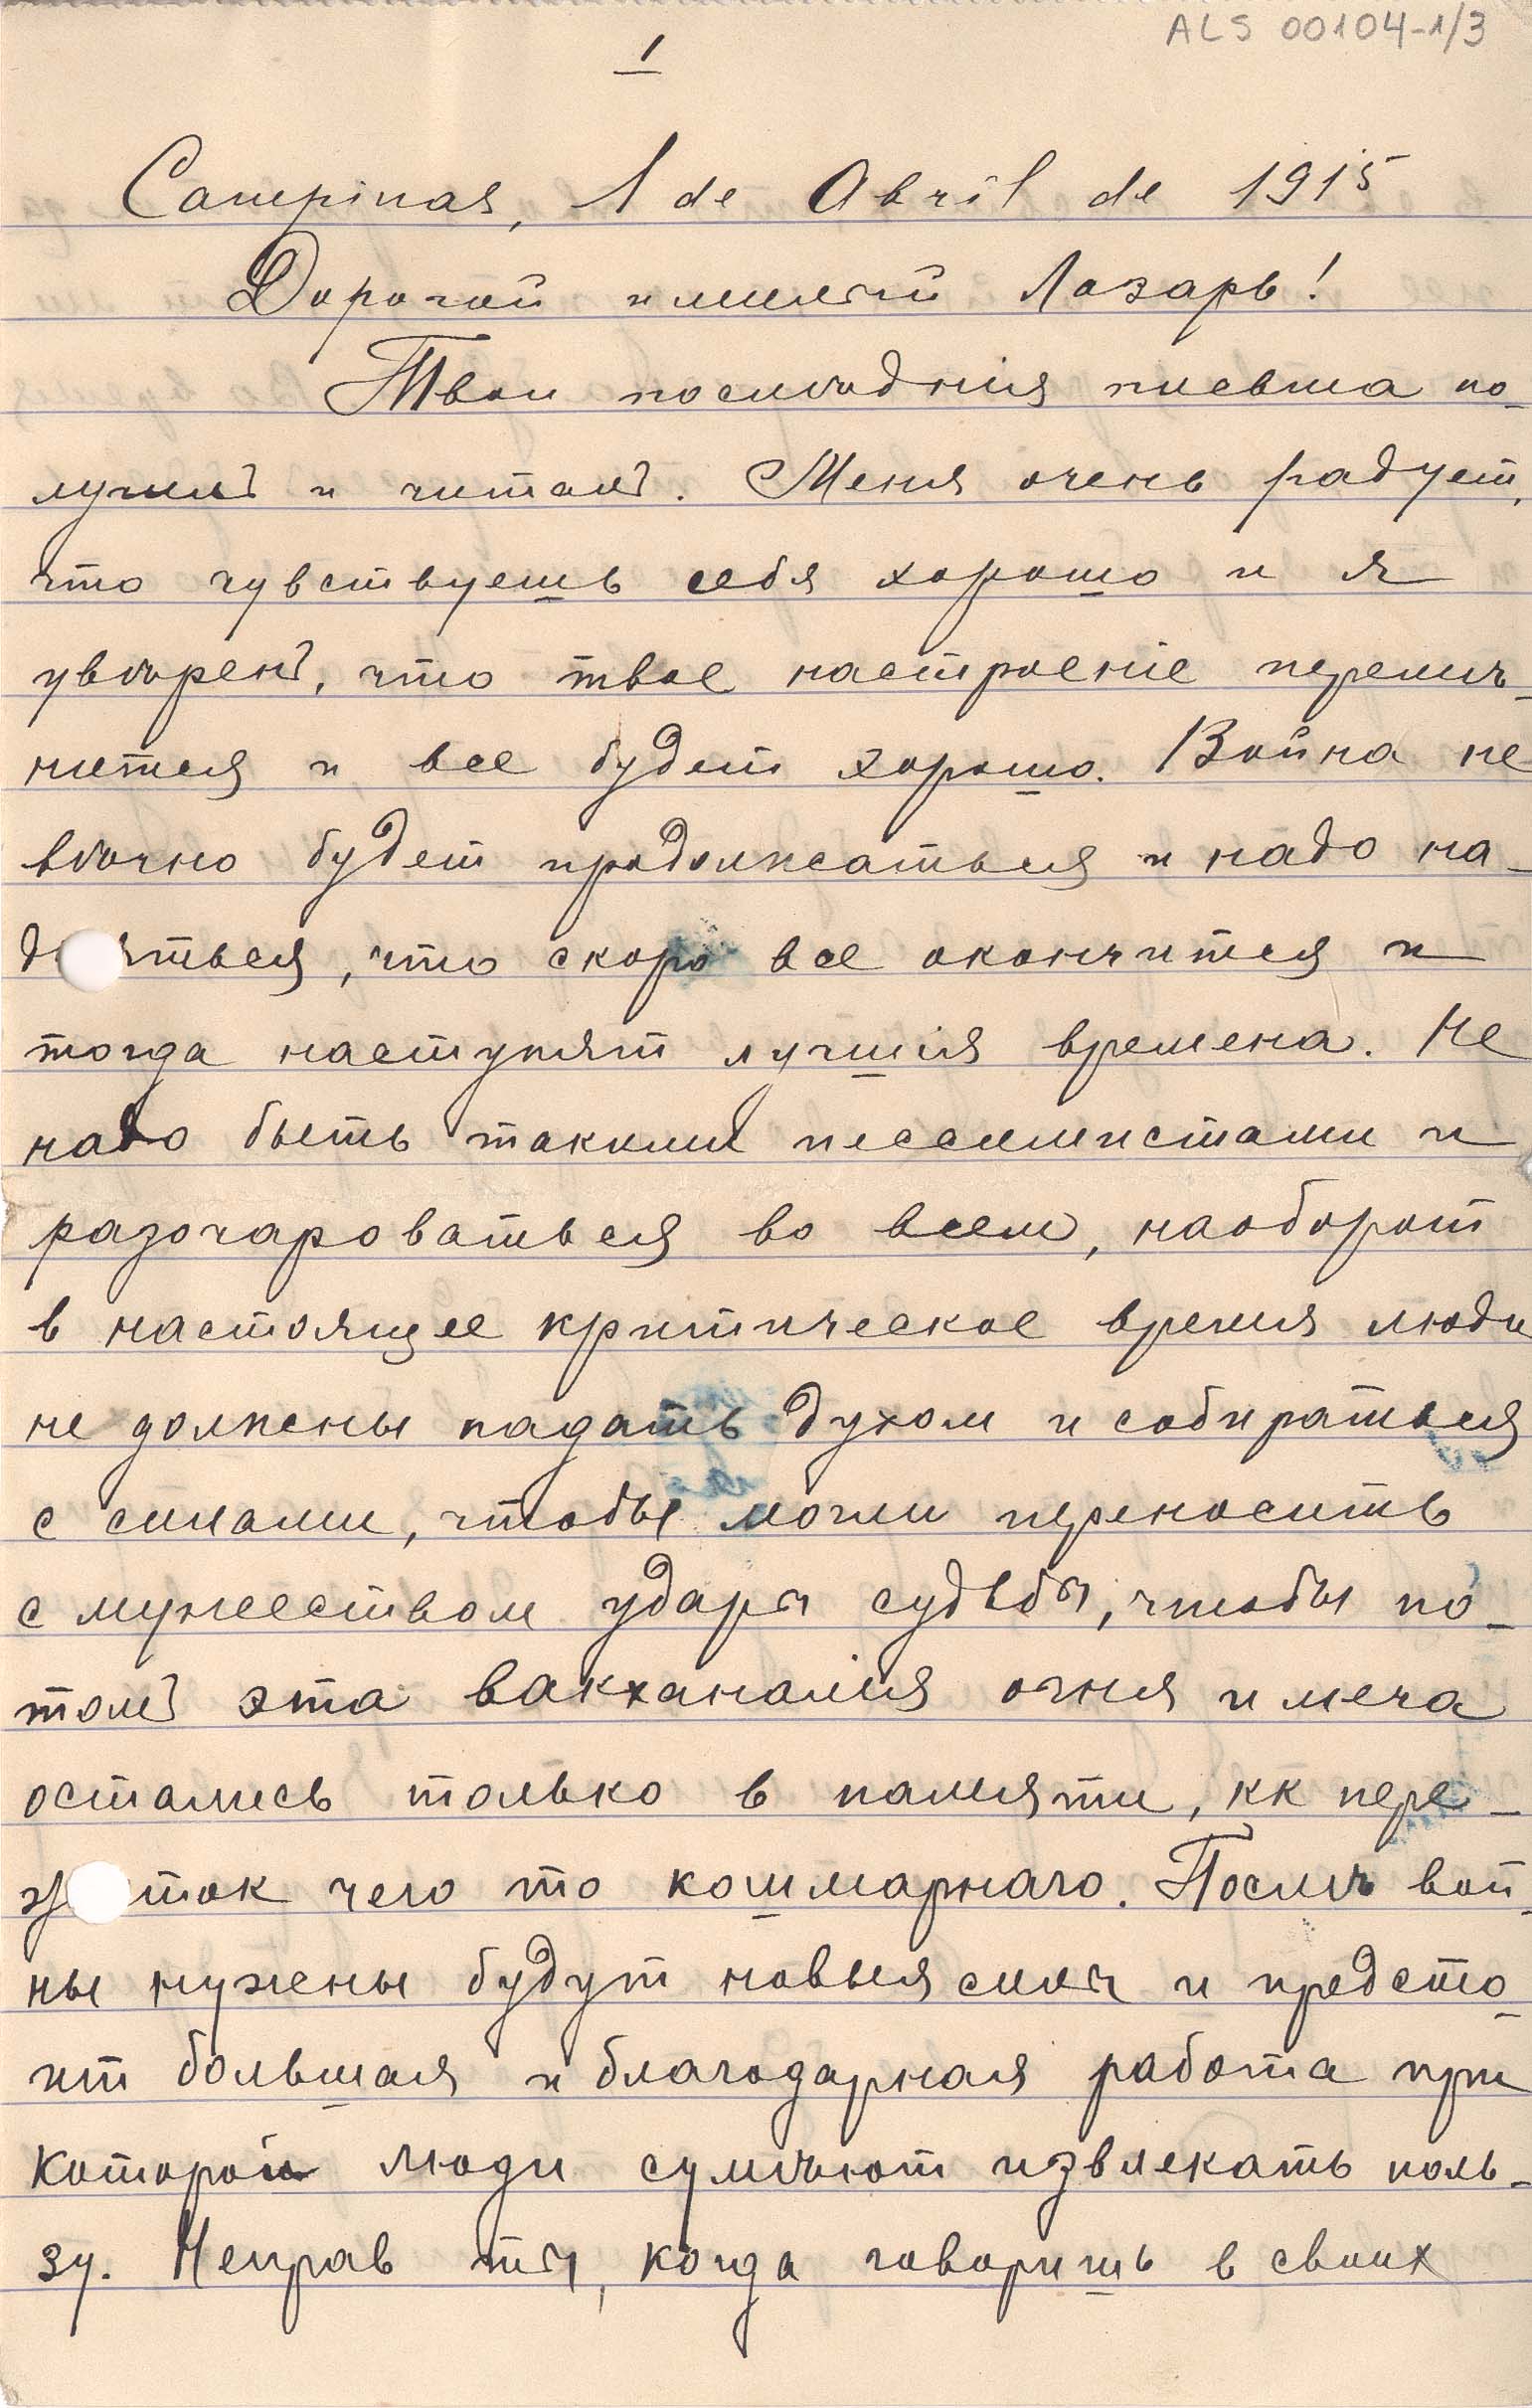 ALS 00104-1/3
1
Campinas, 1 de Abril de 1915
Дорогой и милый Лазарь!
Твои послѣднія письма по-
лучилъ и читалъ. Меня очень радует,
что чувствуешь себя хорошо и я
увѣренъ, что твое настроеніе перемѣ-
нится и все будет хорошо. Война не
вѣчно будет продолжаться и надо на-
дѣяться, что скоро все окончится и
тогда наступят лучшія времена. Не
надо быть такими пессимистами и
разочароваться во всем, наоборот
в настоящее критическое время люди
не должены падать духом и собираться
с силами, чтобы могли переносить
с мужеством удары судьбы, чтобы по-
томъ эта вакханалія огня и меча
остались только в памяти, кк пере-
житок чего то кошмарнаго. Послѣ вой-
ны нужены будут новыя силы и предсто-
ит большая и благодарная работа при
которой люди сумѣют извлекать поль-
зу. Неправ ты, когда говоришь в своих